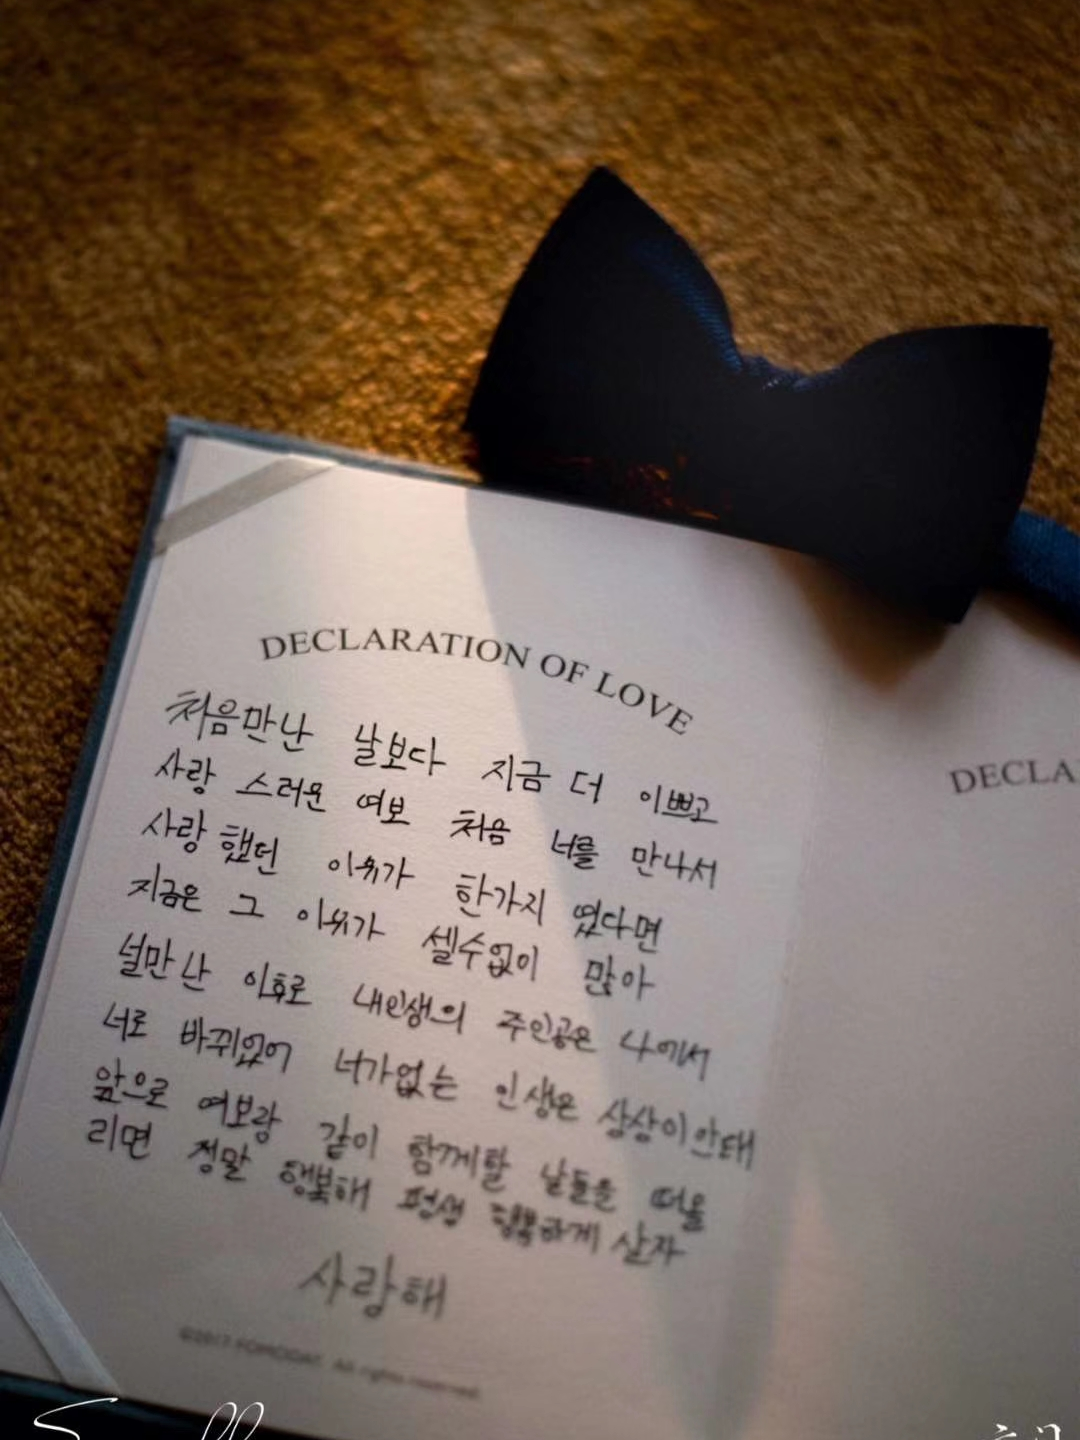 DECLARATION OF LOVE
처음만난 날보다 지금 더 이쁘고
사랑 스러운 여보 처음 너를 만나서
사랑 했던 이유가 한가지 였다면
지금은 그 이유가 셀수없이 많아
널만난 이후로 내인생의 주인공은 나에서
너로 바뀌었어 너가없는 인생은 상상이안돼
앞으로 여보랑 같이 함께할 날들을 떠올
리면 정말 행복해 평생 행복하게 살자
사랑해
©2017 All rights reserved.
DECLA